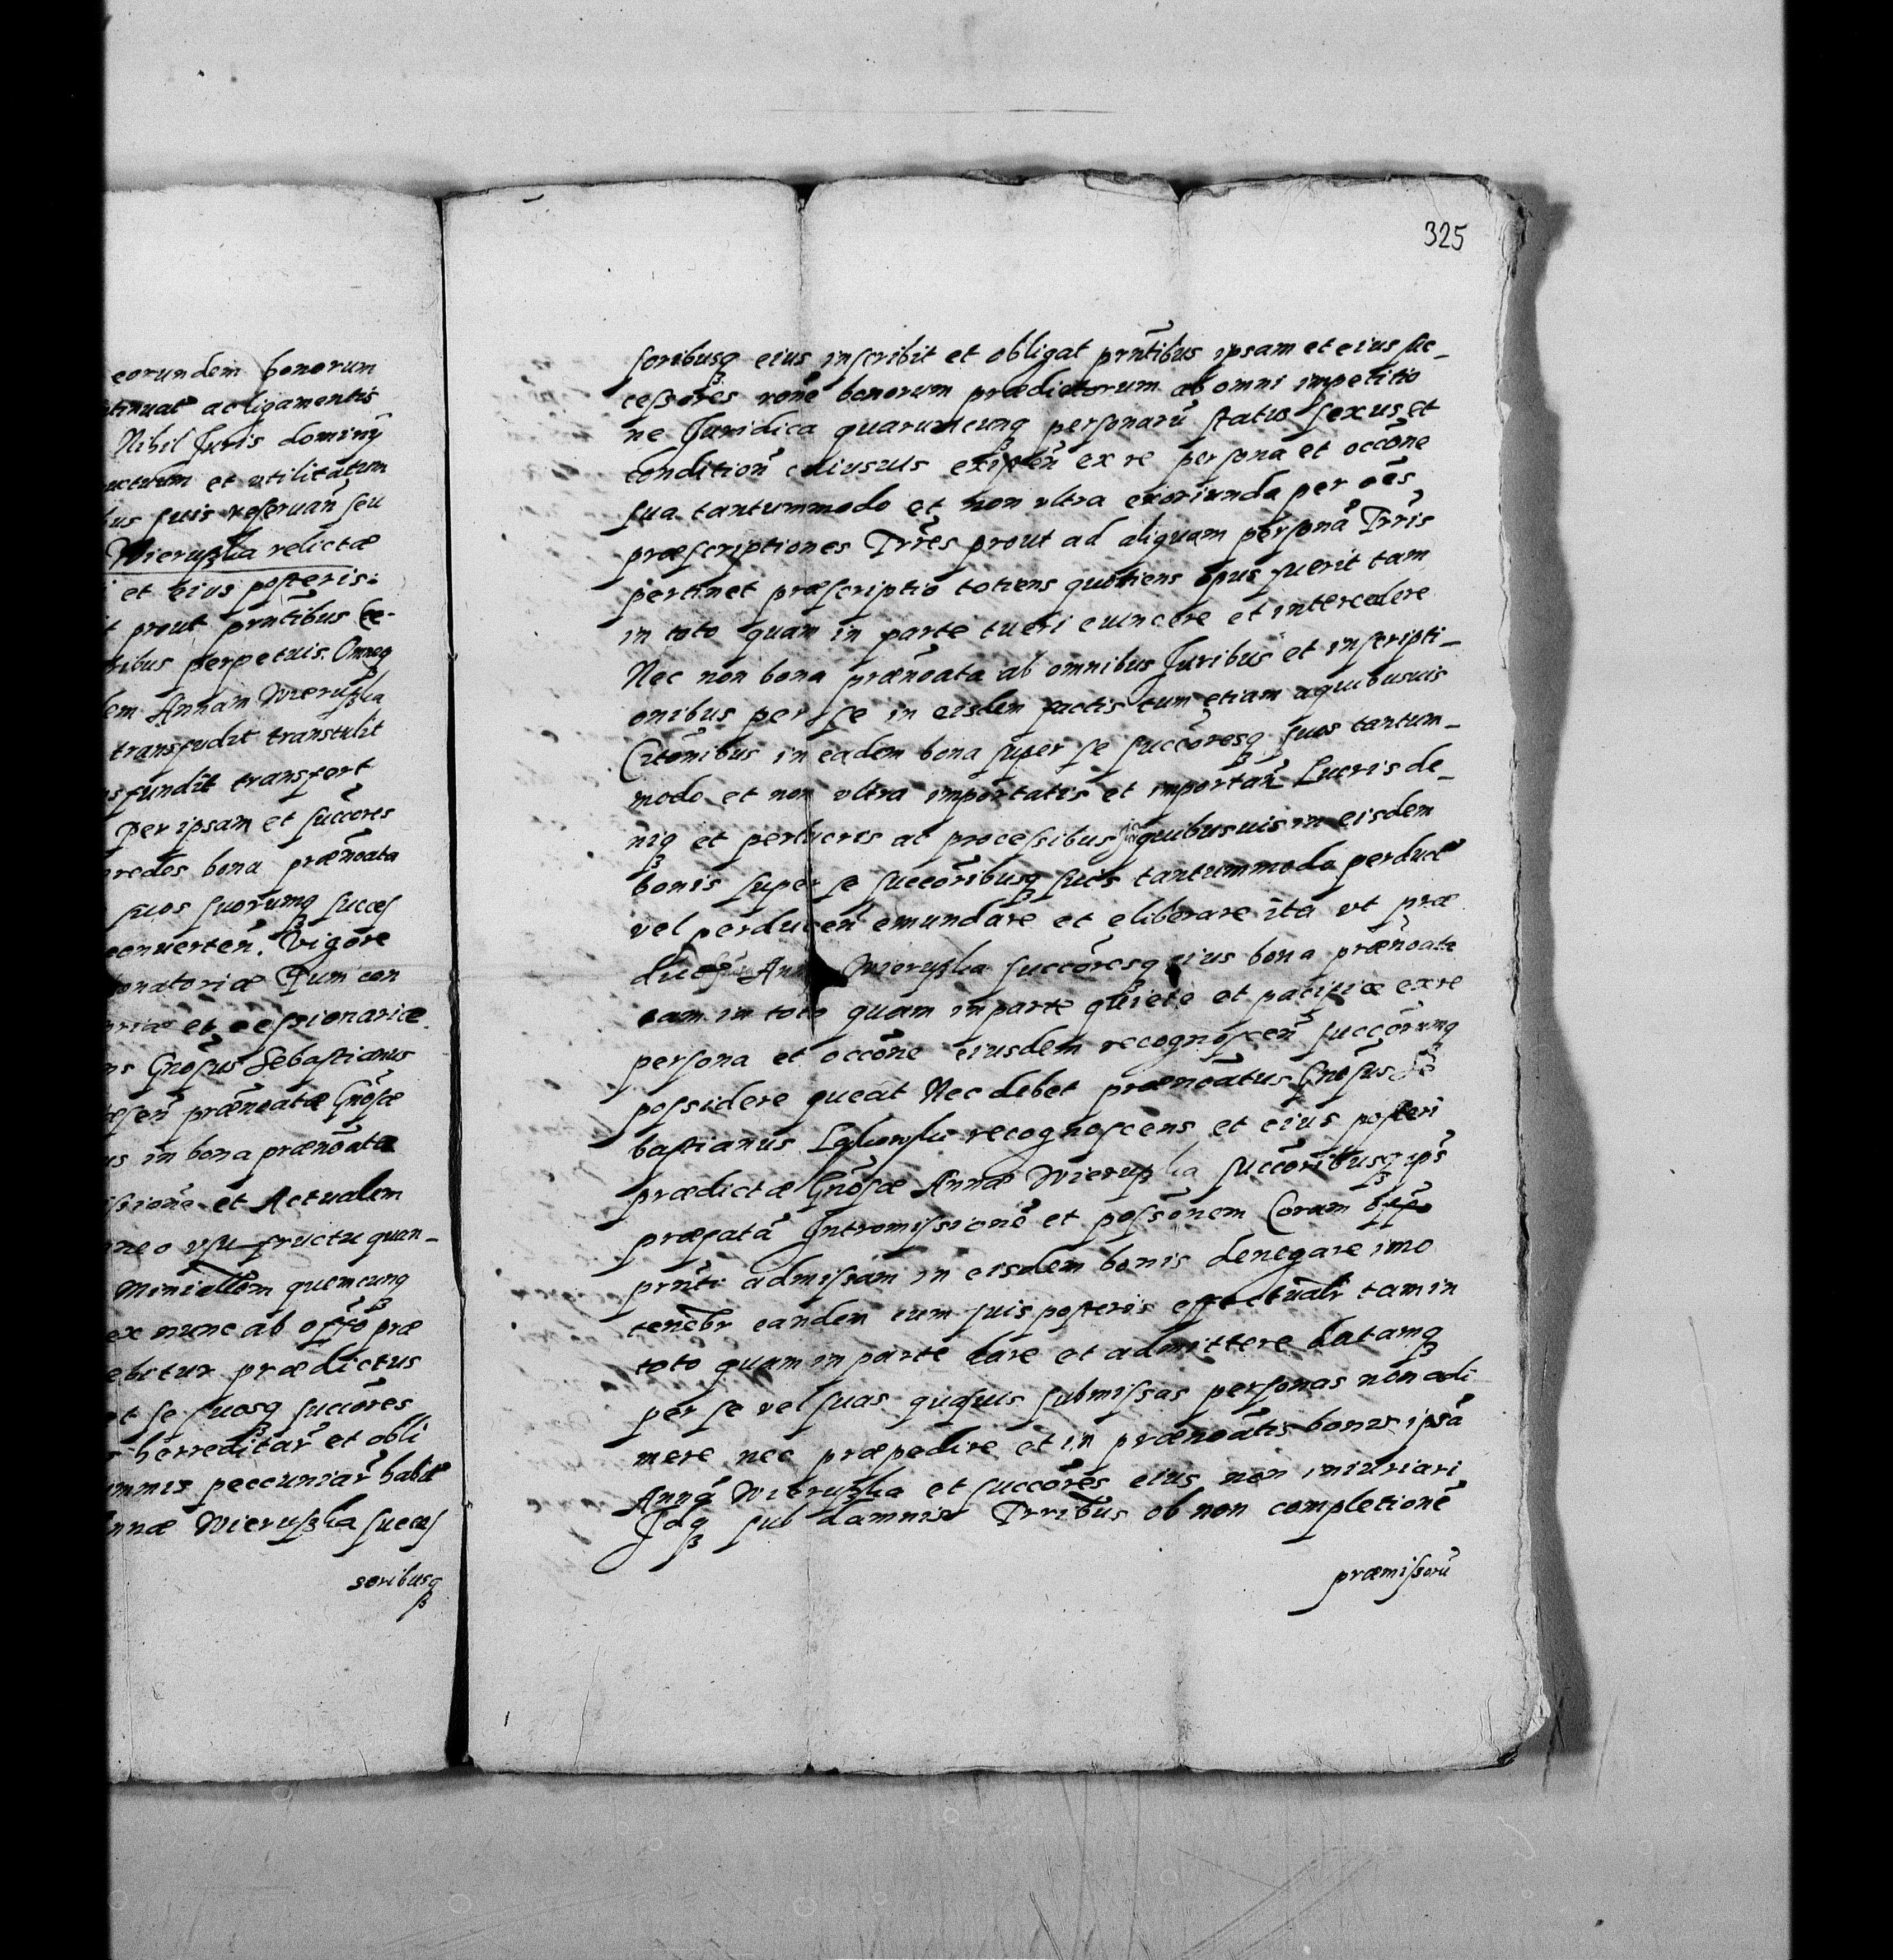 eorundem bonorum
ac ligamentis
Nihil Juris dominÿ
et vtilitatum
suis reseruan̄ seu
Wieruska relictæ
et eius posteris:
prout prn̄tibus Ce-
perpetuis. Omneq
Annam Wieruska
transfudit transtulit
transfert
Per ipsam et succores
bona prænoata
suos suorumq succes
conuerten̄. Vigore
Tum con
et cessionariæ
Gnosus Sebastianus
prænoatæ Gnosæ
in bona prænoata
et Actualem
vsu fructu quan-
Minialem quemcunq
ex nunc ab offo præ
prædictus
se suosq succores
hærreditar̄ et obli
peccuniar̄ habit
Wieruska succes
soribusq
325
soribusq eius inscribit et obligat prn̄tibus ipsam et eius suc-
cessores rōne bonorum prædictorum ab omni impetitio
ne Juridica quarumcunq personarū status sexus et
condition̄ cuiusuis existen̄ ex re persona et occōne
sua tantummodo et non vltra exoriunda per oēs
præscriptiones Trr̄es prout ad aliquam personā Trr̄is
pertinet præscriptio totiens quotiens opus fuerit tam
in toto quam in parte tueri euincere et intercedere
Nec non bona prænōata ab omnibus Juribus et inscripti-
onibus per se in eisdem factis tum etiam a quibusuis
Citōnibus in eadem bona super se succōresq suos tantum-
modo et non vltra importatis et importan̄ Lucris de-
niq et perlucris ac processibus in quibusuis in eisdem
bonis super se succōribusq suis tantummodo perduct
vel perducen̄ emundare et eliberare ita vt præ
Wieruska succōresq eius bona prænōata
tam in toto quam in parte quiete et pacificæ ex re
persona et occōne eiusdem recognoscen̄ succōrumq
possidere queat Nec debet prænōatus Gnōsus Se
bastianus recognoscens et eius posteri
prædictæ Gnōsæ Annæ Wieruska succōribusq ips̄
præfatā Intromissionē et possōnem Coram offo
prn̄ti admissam in eisdem bonis denegare imo
tenebr eandem cum suis posteris effectualr tam in
toto quam in parte dare et admittere datamq
per se vel suas quasuis submissas personas non adi
mere nec præpedire et in prænōatis bonis ipsā
Annā Wieruska et succōres eius non iniuriari
Idq sub damnis Trribus ob non completionē
præmissorū